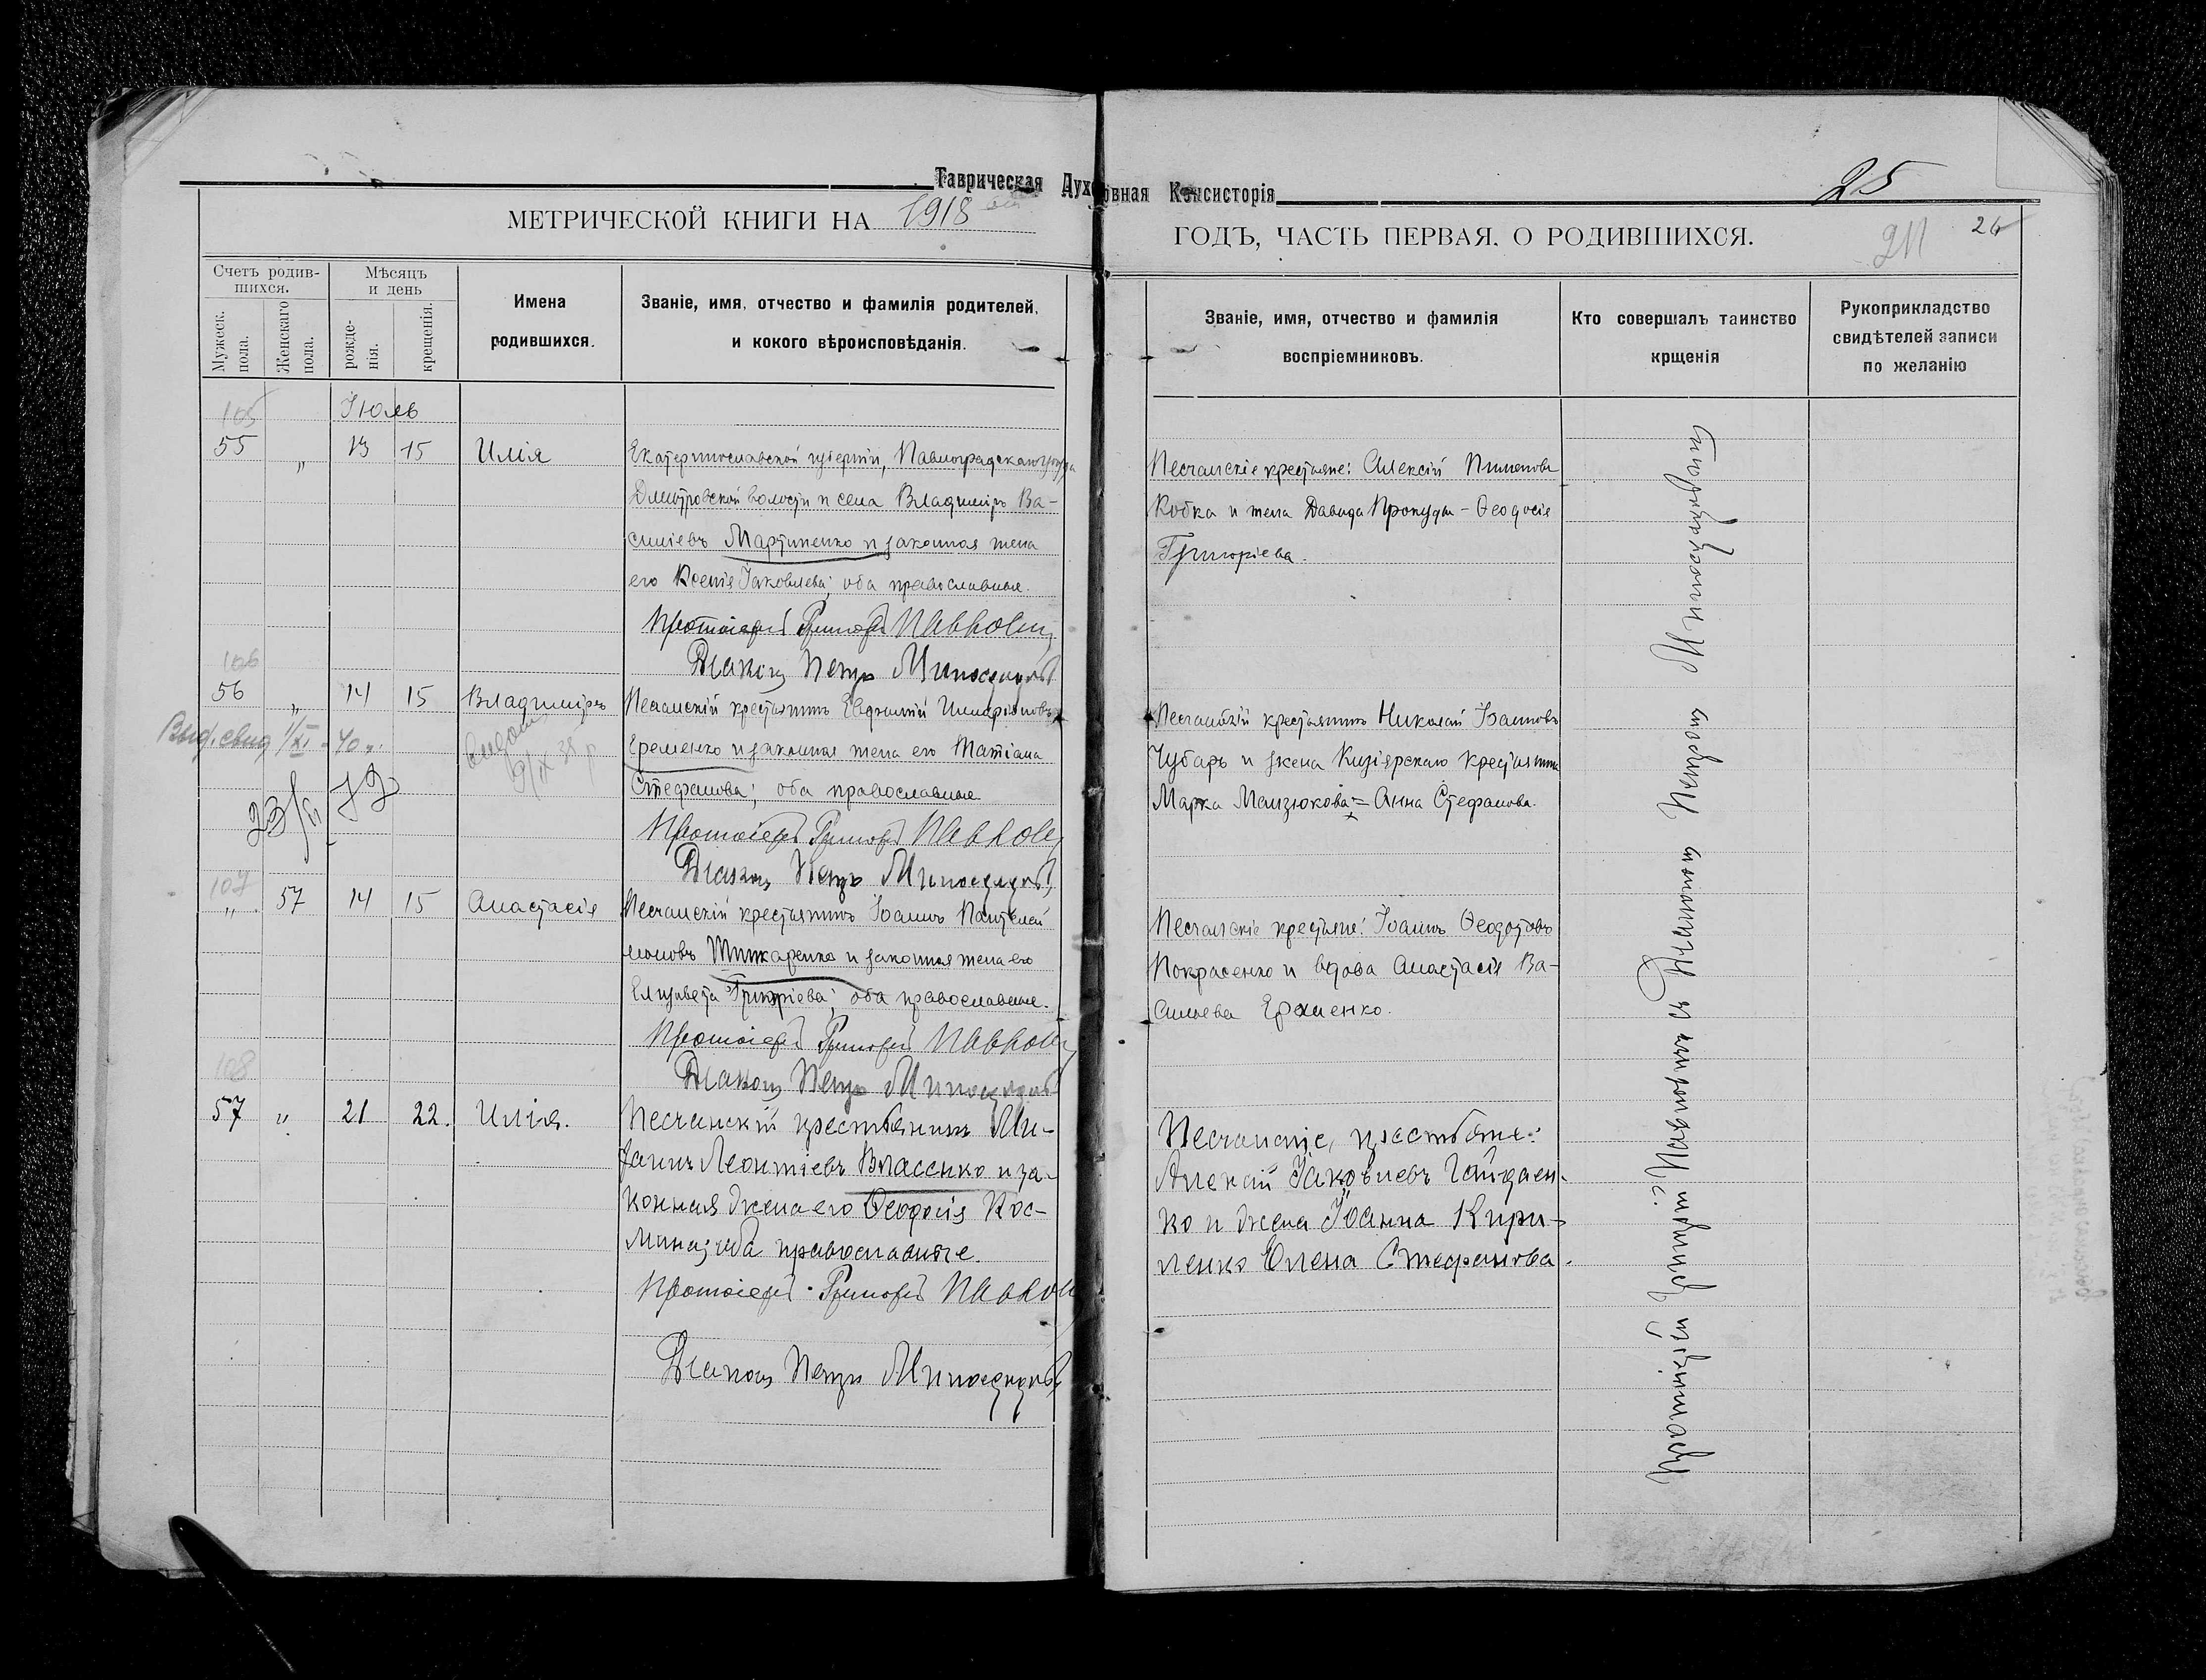 Таврическая Духовная Консисторія
25
МЕТРИЧЕСКОЙ КНИГИ НА 1918
ГОДЪ, ЧАСТЬ ПЕРВАЯ. О РОДИВШИХСЯ.
26
Счетъ родив-
шихся.
Мужеск.
пола.
Женскаго
пола.
Мѣсяцъ
и день
рожде-
нія.
крещенія.
Имена
родившихся.
Званіе, имя, отчество и фамилія родителей,
и кокого вѣроисповѣданія.
Званіе, имя, отчество и фамилія
воспріемниковъ.
Кто совершалъ таинство
крщенія
Рукоприкладство
свидѣтелей записи
по желанію
105
Іюль
55 " 13 15 Илія
Екатеринославской губерніи, Павлоградскаго уѣзда
Дмитровской волости и села Владиміръ Ва-
силіевъ Мартиненко и законная жена
его Ксенія Іаковлева; оба православные.
Протоіерей Григорій Павкович
Діаконъ Петръ
Песчанскіе крестьяне: Алексій Пименовъ
Кобка и жена Давида Прокуды - Ѳеодосія
Григоріева.
106
56 " 14 15 Владиміръ
Выд. свид 1/XI - 40 г.
23/ 72
Песчанскій крестьянинъ Евфимій Иларіоновъ
Еременко и законная жена его Татіана
Стефанова; оба православные
Протоіерей Григорій Павкович
Діаконъ Петръ
Песчанскій крестьянинъ Николай Іоанновъ
Чубарь и жена Кизіярскаго крестьянина
Марка Мамзюкова = Анна Стефанова.
107
" 57 14 15 Анастасія
Песчанскій крестьянинъ Іоаннъ Пантелей
моновъ Шинкаренко и законная жена его
Елизавета Григоріева; оба православные.
Протоіерей Григорій Павкович
Діаконъ Петръ
Песчанскіе крестьяне: Іоаннъ Ѳеодотовъ
Покрасенко и вдова Анастасія Ва-
сильева Ерменко.
108
57 " 21 22. Илія.
Песчанскій крестьянинъ Ми-
хаилъ Леонтіевъ Власенко и за-
конная жена его Ѳеодосія Кос-
мина; оба православные.
Протоіерей Григорій Павкович
Діаконъ Петръ
Песчанскіе, крестьяне:
Алексій Іаковлевъ Гайдаен-
ко и жена Іоанна Кири-
ленко Елена Стефанова.
Протоіерей Григорій